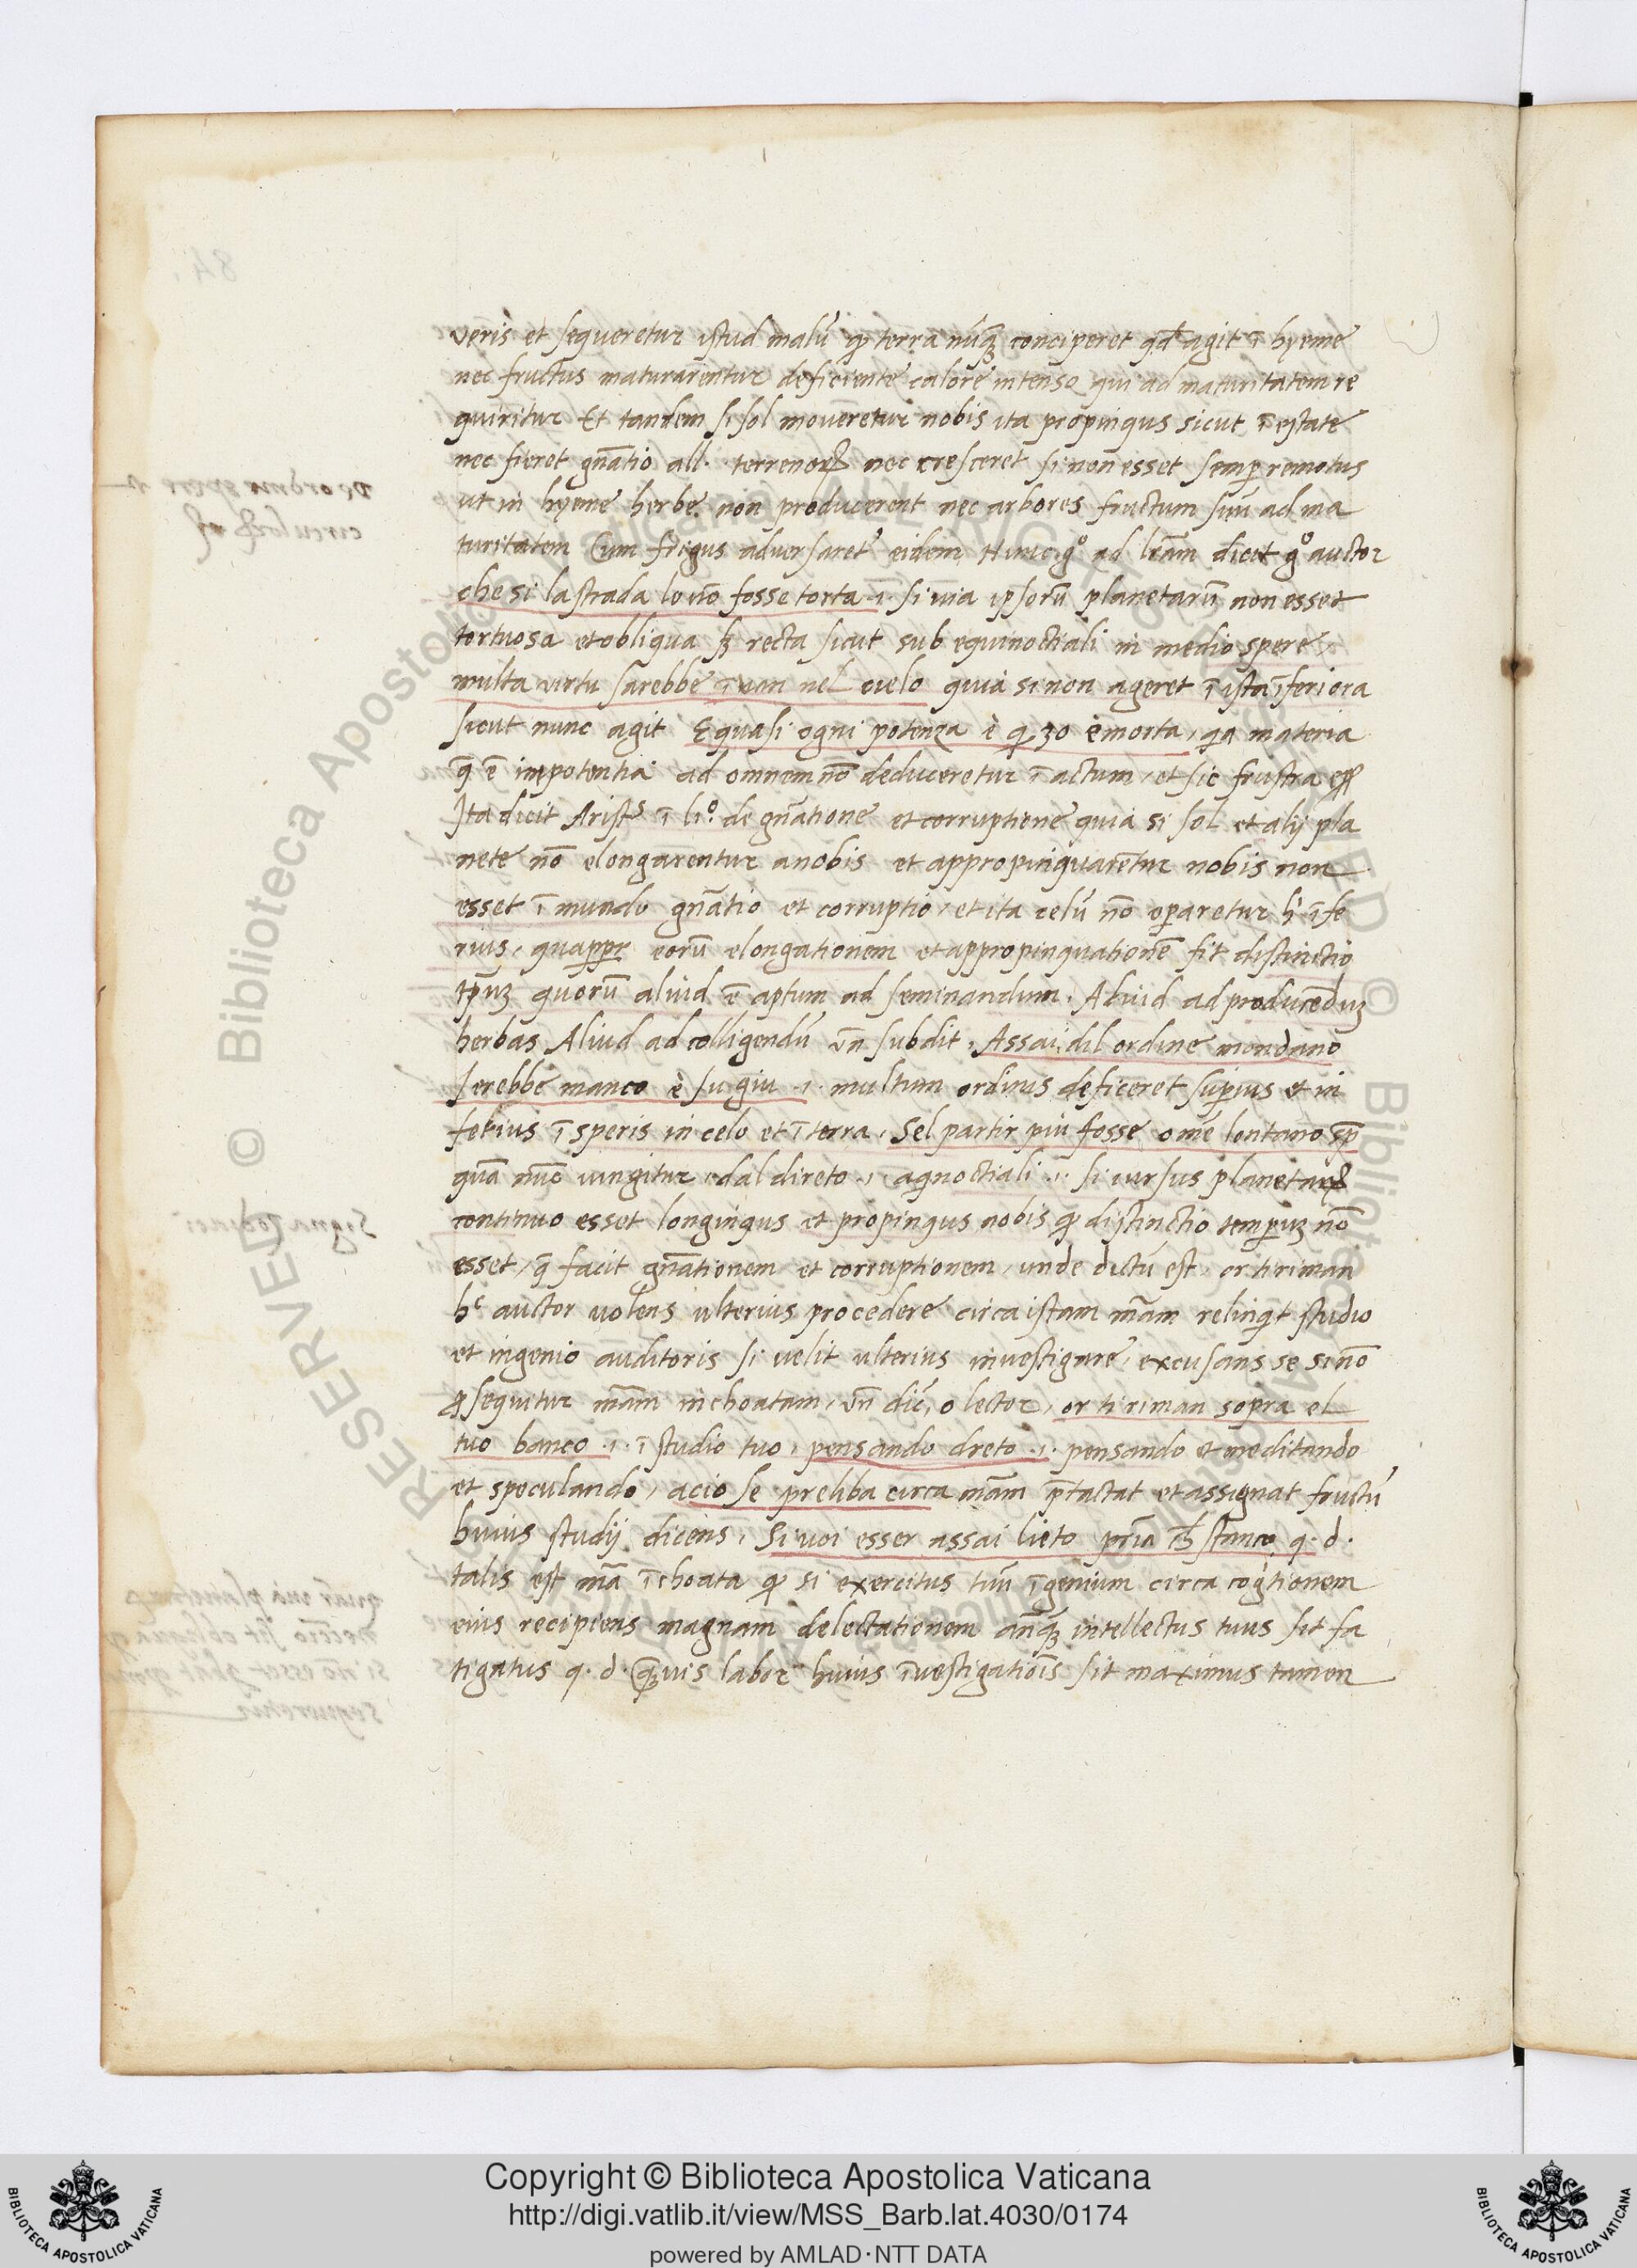 veris et sequeretur istud malũ qȝ terra nũqȝ conciperet qd̃ agit ĩ hyeme
nec fructus maturarentur deficiente calore intenso qui ad maturitatem re
quiritur Et tandem si sol moueretur nobis ita propinqus sicut ĩ estate
nec fieret gñatio all. terrenorꝝ nec cresceret si non esset semp̃ remotus
ut in hyeme herbe non producerent nec arbores fructum suũ ad ma
turitatem Cum frigus aduersaret' eidem Hunc gº ad lr̃am dicit gº auctor
che si la strada lo nõ fosse torta .i. si uia ipsorũ planetarũ non esset
tortuosa et obliqua sȝ recta sicut sub equinoctiali in medio spere
multa uirtu sarebbe ĩ uan nel cielo quia si non ageret ĩ ista ĩferiora
sicut nunc agit E quasi ogni potenza è q̃ 30 è morta, q̃a materia
q̃ ẽ impotentia ad omnem nõ deduceretur ĩ actum, et sic frustra
Ita dicit Arist̃s ĩ liº. de gñatione et corruptiene quia si sol et alij pla
nete nõ elongarentur a nobis et appropinquarẽtur nobis non
esset ĩ mundo gñatio et corruptio, et ita celũ nõ operaretur hⁱ ĩfe
rius, quapp̱r eorũ elongationem et appropinquationẽ fit distinctio
tp̃uȝ quorũ aliud ẽ aptum ad seminandum, Aliud ad producẽduȝ
herbas Aliud ad colligendũ uñ subdit, Assai dil ordine mondano
serebbe manco è su giu .i. multum ordinis deficeret sup̱ius et in
ferius ĩ speris in celo et ĩ terra, Sel partir piu fosse o me lontano sp̃
quã nũc uingitur, dal direto .i. aq̃noctiali .i. si cursus planetarꝝ
continuo esset longinqus et propinqus nobis qȝ distinctio temp̱uȝ nõ
esset, q̃ facit gñationem et corruptionem, unde dictũ est, or ti riman
hᶜ auctor uolens ulterius procedere circa istam mãm relinq̃t studio
et ingenio auditoris si uelit ulterius inuestigare, excusans se si nõ
ꝓsequitur mãm inchoatam, uñ dic̃, o lector, or ti riman sopra el
tuo banco .i. ĩ studio tuo, pensando dreto .i. pensando et meditando
et speculando, acio se preliba circa mãm p̃tactat et assignat fructũ
huius studij dicens, Si uoi esser assai lieto pria ch̃ stanco q. d.
talis est mã ĩchoata qȝ si exercitus tuũ ĩgenium circa cog̃tionem
eius recipiens magnam delectationem anq̃ȝ intellectus tuus sit fa
tigatus q. d. q̃ȝuis labor huius ĩuestigatiõis sit maximus tamen
Copyright © Biblioteca Apostolica Vaticana
http://digi.vatlib.it/view/MSS_Barb.lat.4030/0174
powered by AMLAD·NTT DATA
BIBLIOTECA APOSTOLICA VATICANA
BIBLIOTECA APOSTOLICA VATICANA